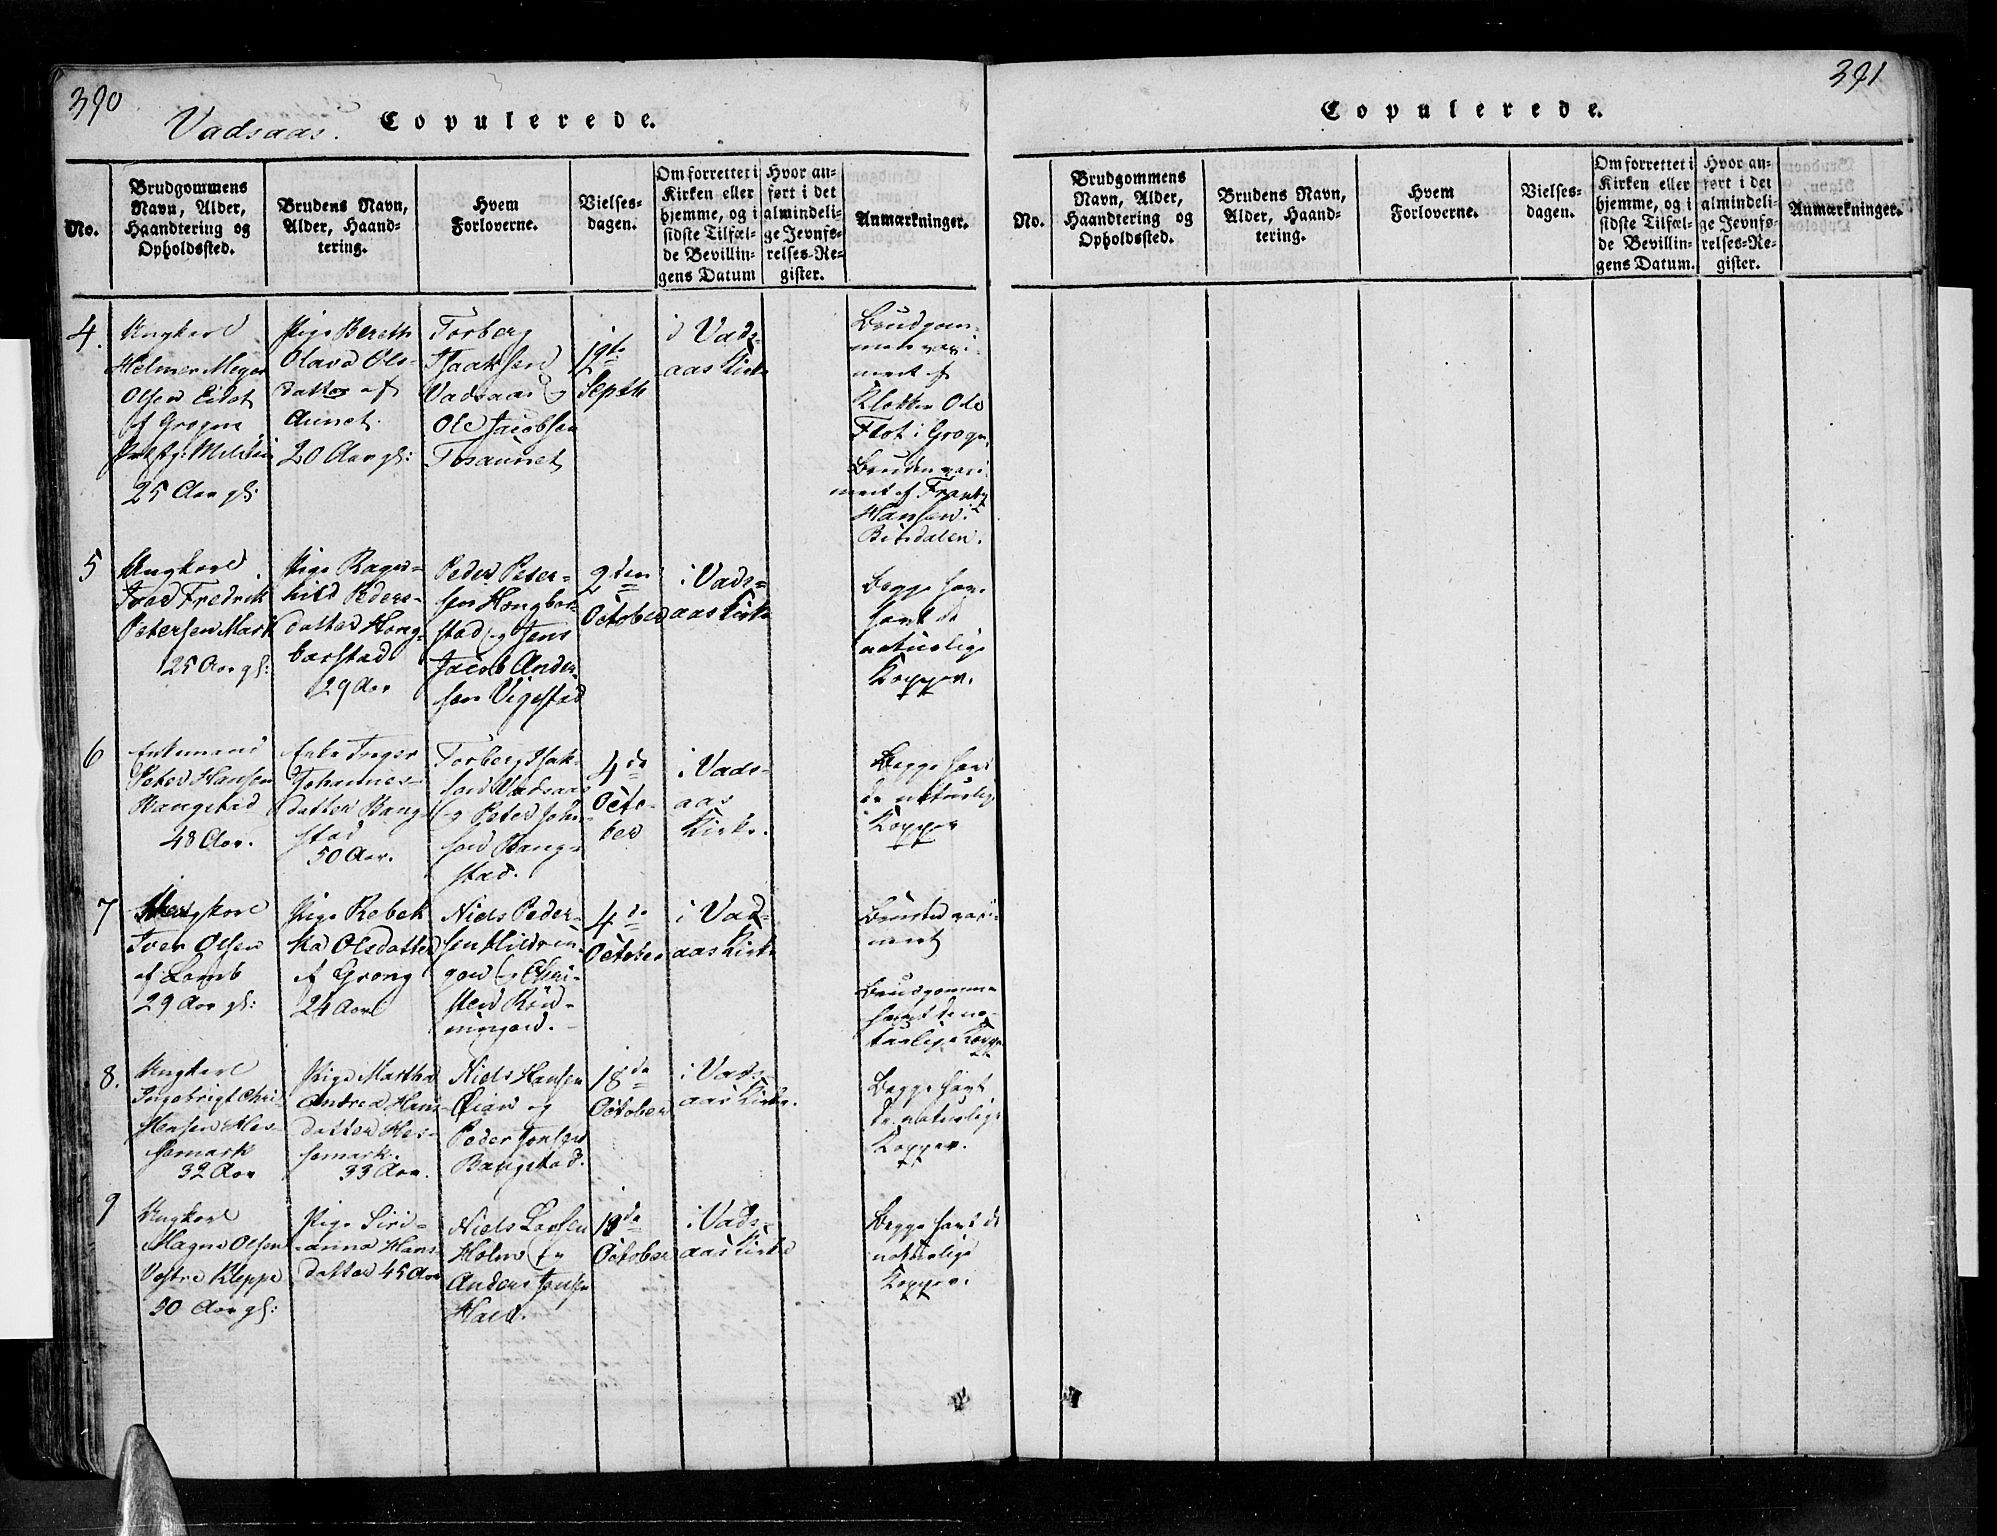 390
Vadsaas. Copulerede.
No.
Brudgommens
Navn, Alder,
Haandtering og
Opholdssted.
Brudens Navn,
Alder, Haand-
tering.
Hvem
Forloverne.
Vielses-
dagen.
Om forrettet i
Kirken eller
hjemme, og i
sidste Tilfæl-
de Bevillin-
gens Datum
Hvor an-
ført i det
almindeli-
ge Jevnfø-
relses-Re-
gister.
Anmærkninger.
4.
Ungkarl
Helmer Meyer
Olsen Eidet
af Grogn
25 Aar gl:
Pige Bereth
Olava Ols-
datter af
Aunet.
20 Aar gl:
Torberg
Isaaksen
Vadsaas og
Ole Jacobsen
Tosaunet
19de
Septb
i Vads-
aas Kirke
Brudgom-
men vaxi-
neret af
Klokker Ole
Flot i Grogn.
Bruden vaxi
neret af Frantz
Hansen i
Bindalen.
5
Ungkarl
Ivar Fredrik
Petersen Mark
25 Aar gl:
Pige Ragn-
hild Peders-
datter Hong-
barstad
29 Aar
Peder Peter-
sen Hongbar-
stad og Jens
Jacob Ander-
sen Vigestad
2den
October
i Vads-
aas Kirke
Begge hav-
havt de
naturlige
Kopper.
6
Enkemand
Peter Hansen
Bangstad
48 Aar.
Enke Inger
Johannes-
datter Bang-
stad
50 Aar.
Torberg Isak-
sen Vadsaas
og Peter John-
sen Bang-
stad.
4de
Octo-
ber
i Vads-
aas
Kirke.
Begge havt
de naturlige
Kopper
7
Ungkarl
Iver Olsen
af Lomb
29 Aar gl:
Pige Rebek
ka Olsdatter
af Grong
24 Aar
Niels Peder-
sen Hildrin-
gen og Chri-
sten Røn-
ningen.
4de
October
i Vad-
aas Kirke
Bruden vaxi-
neret
Brudgommen
havt de na-
turlige Kopper
8.
Ungkarl
Ingebrigt Chri-
stensen Hes-
semark
32 Aar
Pige Martha
Andrea Hans
datter Hes-
semark.
33 Aar.
Niels Hansen
Øian og
Peder Jonsen
Bangstad.
18de
October
i Vads-
aas Kirke.
Begge havt
de naturlige
Kopper.
9
Ungkarl
Magne Olsen
Vestre Kleppe
50 Aar gl:
Pige Siri-
anna Hans-
datter 45 Aar
Niels Larsen
Holm og
Anders Jensen
Hald.
18de
October
i Vads-
aas Kirke
Begge havt de
naturlige
Kopper.
391
Copulerede.
No.
Brudgommens
Navn, Alder,
Haandtering og
Opholdssted.
Brudens Navn,
Alder, Haand-
tering.
Hvem
Forloverne.
Vielses-
dagen.
Om forrettet i
Kirken eller
hjemme, og i
sidste Tilfæl-
de Bevillin-
gens Datum.
Hvor an-
ført i det
almindeli-
ge Jevnfø-
relses-Re-
gister.
Anmærkninger.